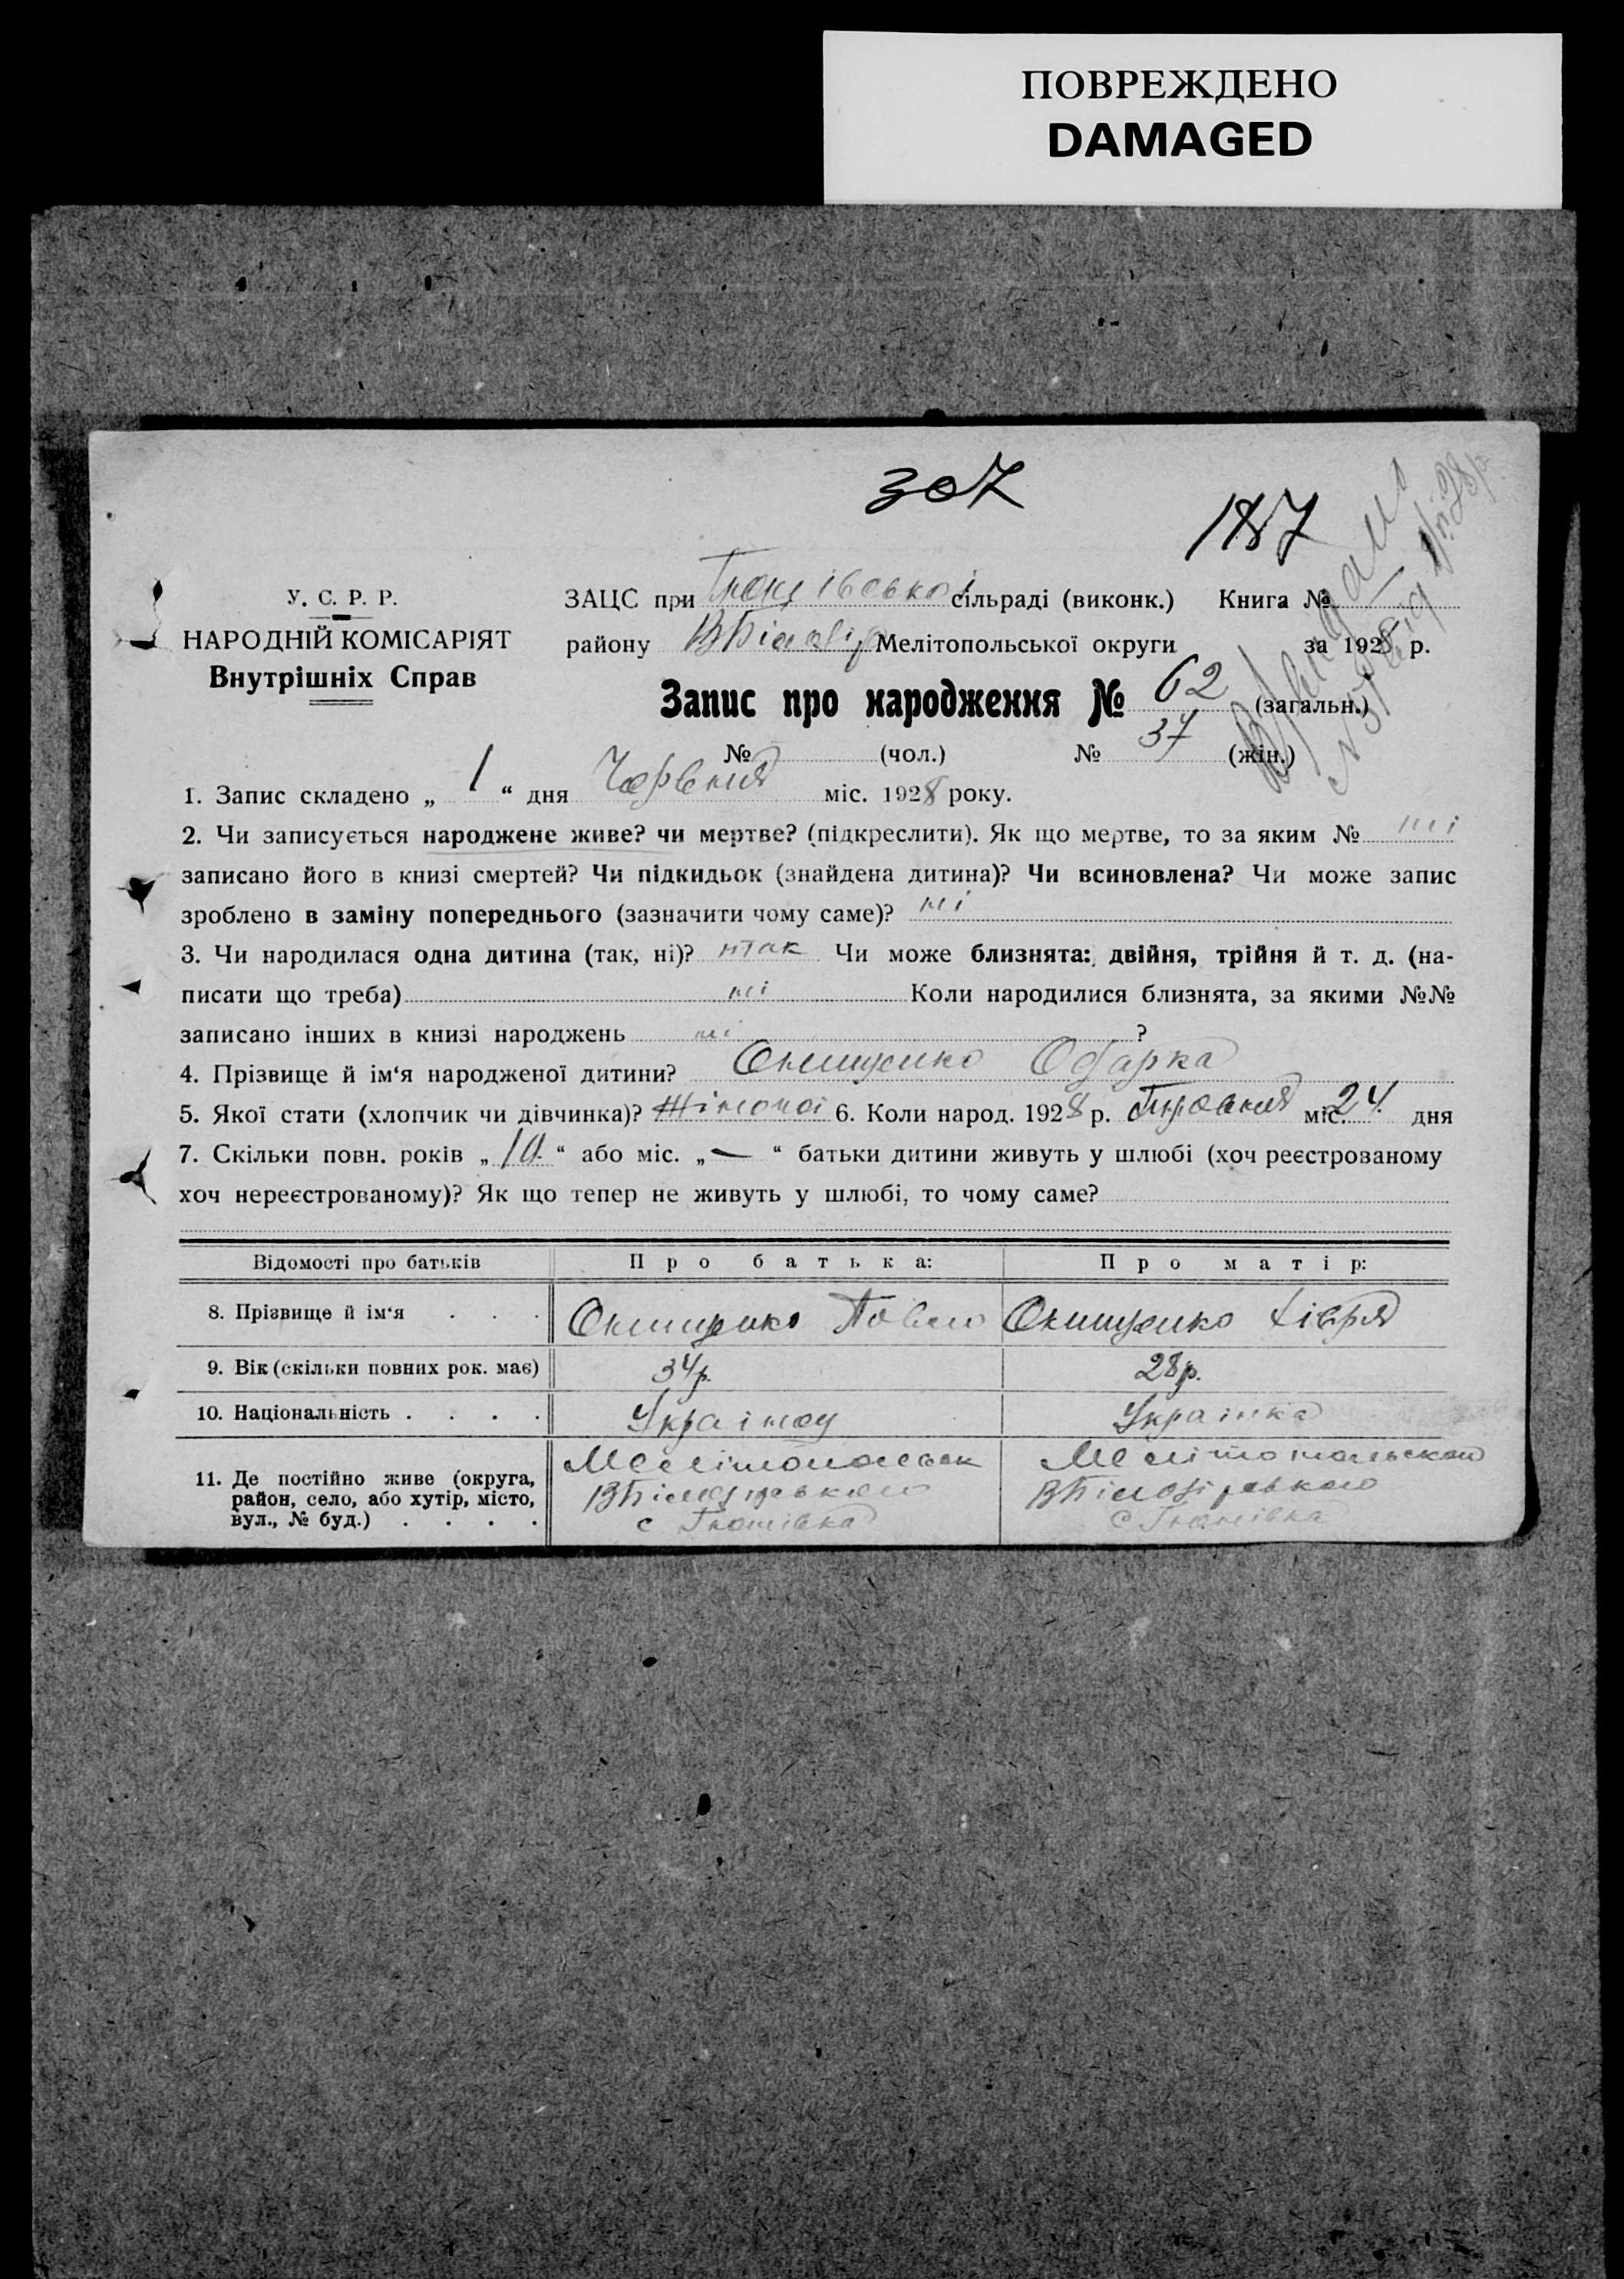 ПОВРЕЖДЕНО
DAMAGED
307
187
У. С. Р. Р.
НАРОДНІЙ КОМІСАРІЯТ
Внутрішніх Справ
ЗАЦС при сільраді (виконк.) Книга №
району Мелітопольської округи за 1928 р.
Запис про народження № 62 (загальн.)
№ (чол.) № 34 (жін.)
1. Запис складено „ 1 “ дня Червня міс. 1928 року.
2. Чи записується народжене живе? чи мертве? (підкреслити). Як що мертве, то за яким № ні
записано його в книзі смертей? Чи підкидьок (знайдена дитина)? Чи всиновлена? Чи може запис
зроблено в заміну попереднього (зазначити чому саме)? ні
3. Чи народилася одна дитина (так, ні)? так Чи може близнята: двійня, трійня й т. д. (на-
писати що треба) ні Коли народилися близнята, за якими №№
записано інших в книзі народжень ні ?
4. Прізвище й ім‘я народженої дитини? Онищенко Одарка
5. Якої стати (хлопчик чи дівчинка)? Жіночої 6. Коли народ. 1928 р. Травня міс. 24 дня
7. Скільки повн. років „ 10 “ або міс. „ — “ батьки дитини живуть у шлюбі (хоч реєстрованому
хоч нереєстрованому)? Як що тепер не живуть у шлюбі, то чому саме?
Відомості про батьків Про батька: Про матір:
8. Прізвище й ім‘я . . . Онищенко Павло Онищенко Хівря
9. Вік (скільки повних рок. має) 34 р. 28 р.
10. Національність . . . . Українец Українка
11. Де постійно живе (округа,
район, село, або хутір, місто,
вул., № буд.) . . . .